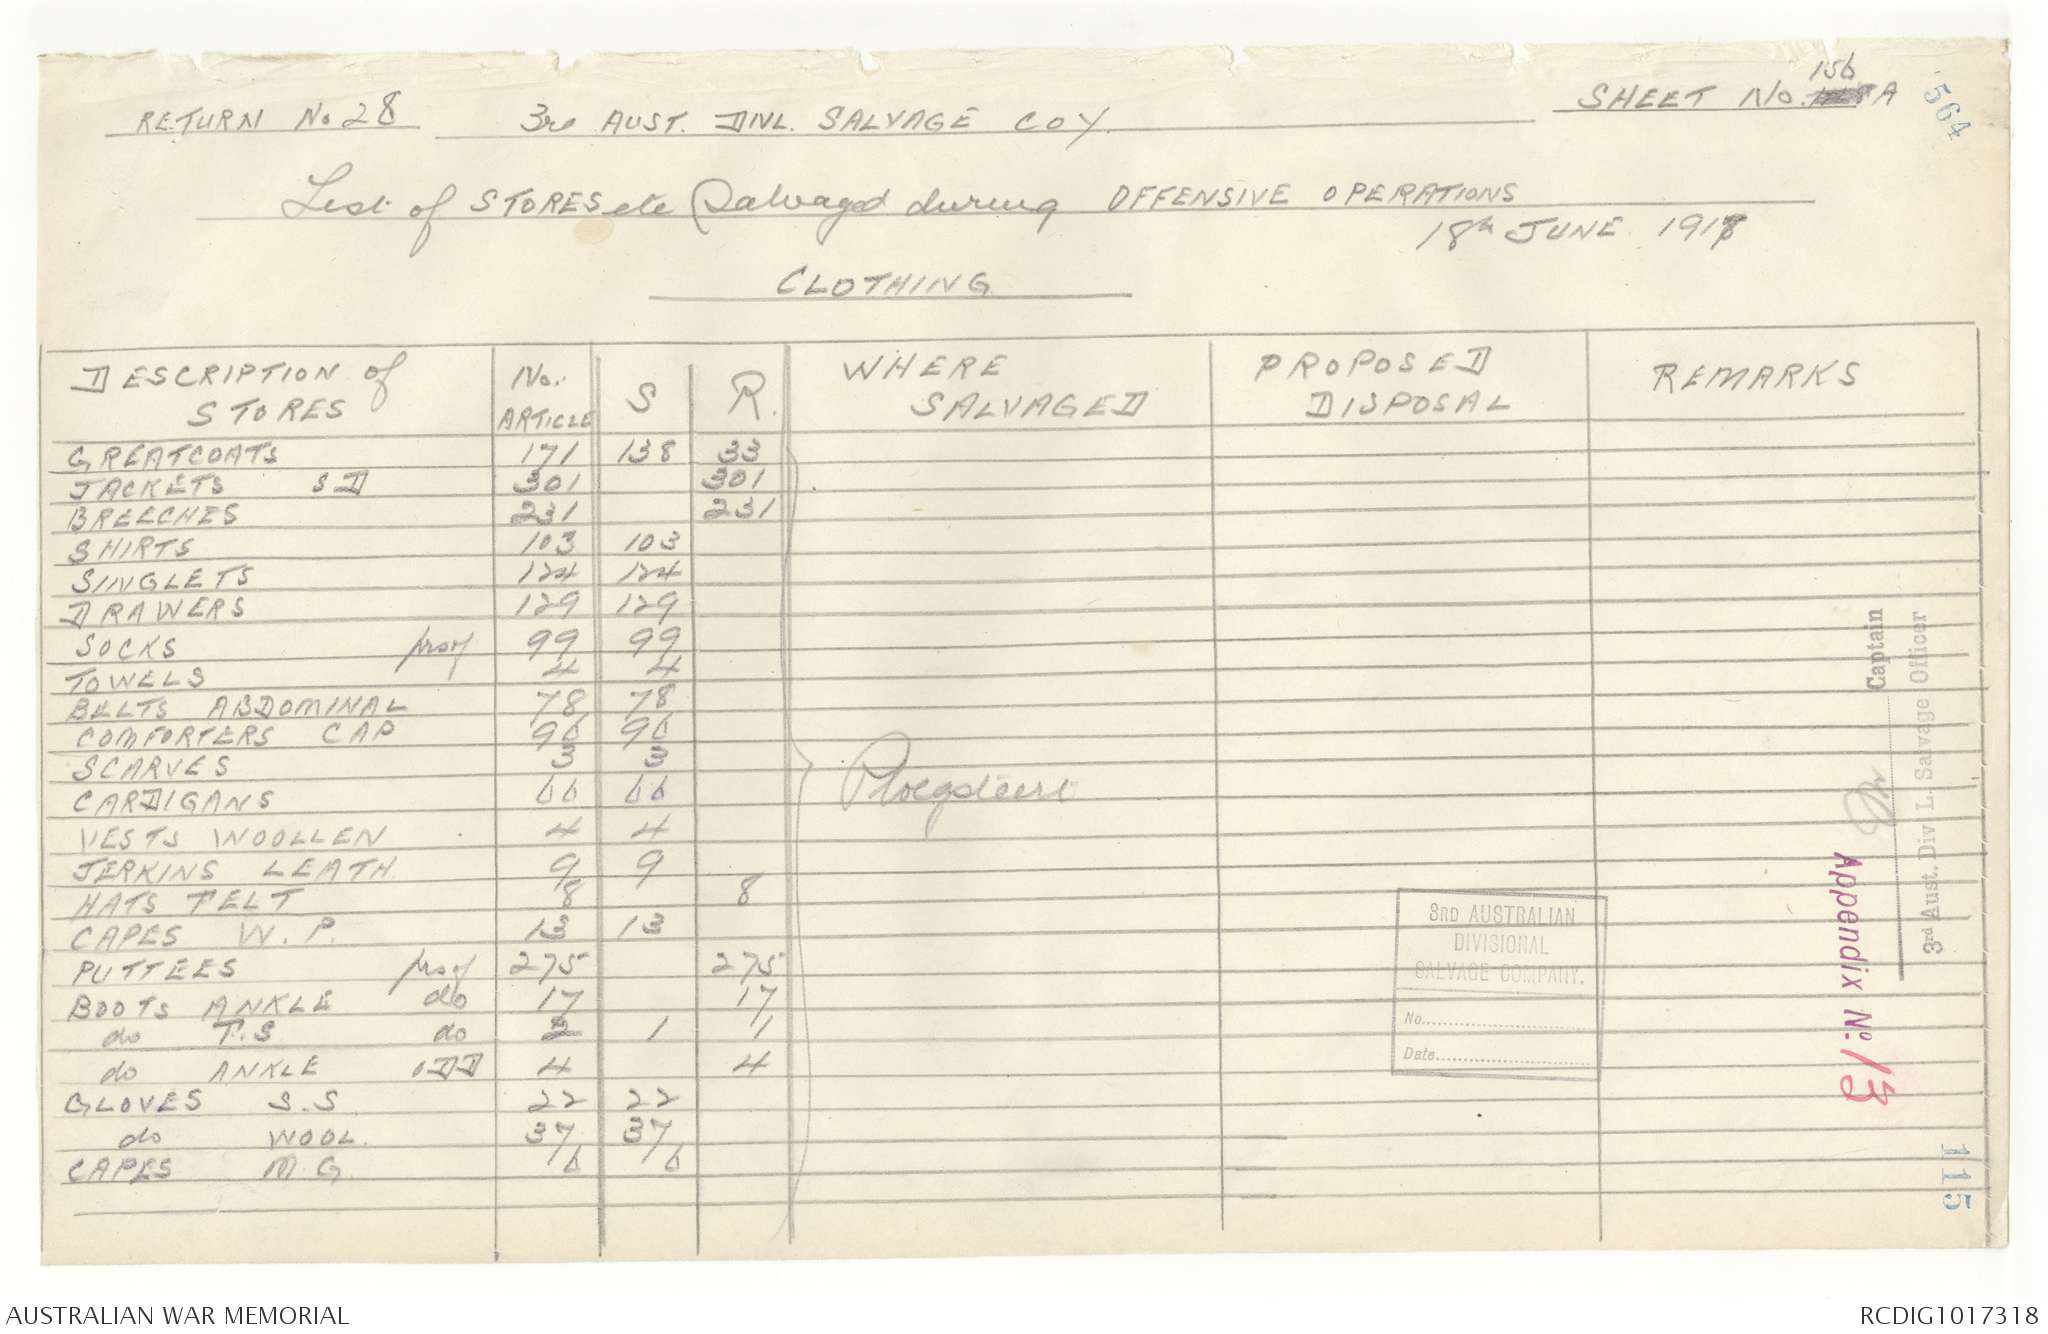 RETURN No 28
3rd AUST. DIVL. SALVAGE COY.
SHEET No. 156 A
564
List of STORES etc Salvaged during OFFENSIVE OPERATIONS
18th JUNE 1917
CLOTHING
DESCRIPTION of STORES | No. ARTICLE | S | R. | WHERE SALVAGED | PROPOSED DISPOSAL | REMARKS
GREATCOATS 171 138 33
JACKETS SD 301 301
BREECHES 231 231
SHIRTS 103 103
SINGLETS 124 124
DRAWERS 129 129
SOCKS prs 99 99
TOWELS 4 4
BELTS ABDOMINAL 78 78
COMFORTERS CAP 96 96
SCARVES 3 3
CARDIGANS 66 66
Ploegsteert
VESTS WOOLLEN 4 4
JERKINS LEATH. 9 9
HATS FELT 8 8
CAPES W.P. 13 13
PUTTEES prs 275 275
BOOTS ANKLE do 17 17
do T.S do 2 1 1
do ANKLE ODD 4 4
GLOVES S.S 22 22
do WOOL. 37 37
CAPES M.G. 6 6
3RD AUSTRALIAN
DIVISIONAL
SALVAGE COMPANY.
No.
Date
Captain
3rd Aust. Div L. Salvage Officer
Appendix No. 13
115
AUSTRALIAN WAR MEMORIAL
RCDIG1017318